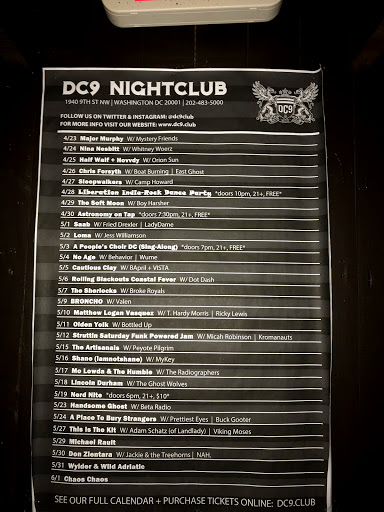 DC9 NIGHTCLUB
1940 9TH ST NW | WASHINGTON DC 20001 | 202-483-5000
DC9
FOLLOW US ON TWITTER & INSTAGRAM: @dc9club
FOR MORE INFO VISIT OUR WEBSITE: www.dc9.club
4/23 Major Murphy W/ Mystery Friends
4/24 Nina Nesbitt W/ Whitney Woerz
4/25 Half Waif + Hovvdy W/ Orion Sun
4/26 Chris Forsyth W/ Boat Burning | East Ghost
4/27 Sleepwalkers W/ Camp Howard
4/28 Liberation Indie-Rock Dance Party *doors 10pm, 21+, FREE*
4/29 The Soft Moon W/ Boy Harsher
4/30 Astronomy on Tap *doors 7:30pm, 21+, FREE*
5/1 Saab W/ Fried Drexler | LadyDame
5/2 Loma W/ Jess Williamson
5/3 A People's Choir DC (Sing-Along) *doors 7pm, 21+, FREE*
5/4 No Age W/ Behavior | Wume
5/5 Cautious Clay W/ BApril + VISTA
5/6 Rolling Blackouts Coastal Fever W/ Dot Dash
5/7 The Sherlocks W/ Broke Royals
5/9 BRONCHO W/ Valen
5/10 Matthew Logan Vasquez W/ T. Hardy Morris | Ricky Lewis
5/11 Olden Yolk W/ Bottled Up
5/12 Struttin Saturday Funk Powered Jam W/ Micah Robinson | Kromanauts
5/15 The Artisanals W/ Peyote Pilgrim
5/16 Shane (Iamnotshane) W/ MyKey
5/17 Mo Lowda & The Humble W/ The Radiographers
5/18 Lincoln Durham W/ The Ghost Wolves
5/19 Nerd Nite *doors 6pm, 21+, $10*
5/23 Handsome Ghost W/ Beta Radio
5/24 A Place To Bury Strangers W/ Prettiest Eyes | Buck Gooter
5/27 This Is The Kit W/ Adam Schatz (of Landlady) | Viking Moses
5/29 Michael Rault
5/30 Don Zientara W/ Jackie & the Treehorns | NAH.
5/31 Wylder & Wild Adriatic
6/1 Chaos Chaos
SEE OUR FULL CALENDAR + PURCHASE TICKETS ONLINE: DC9.CLUB